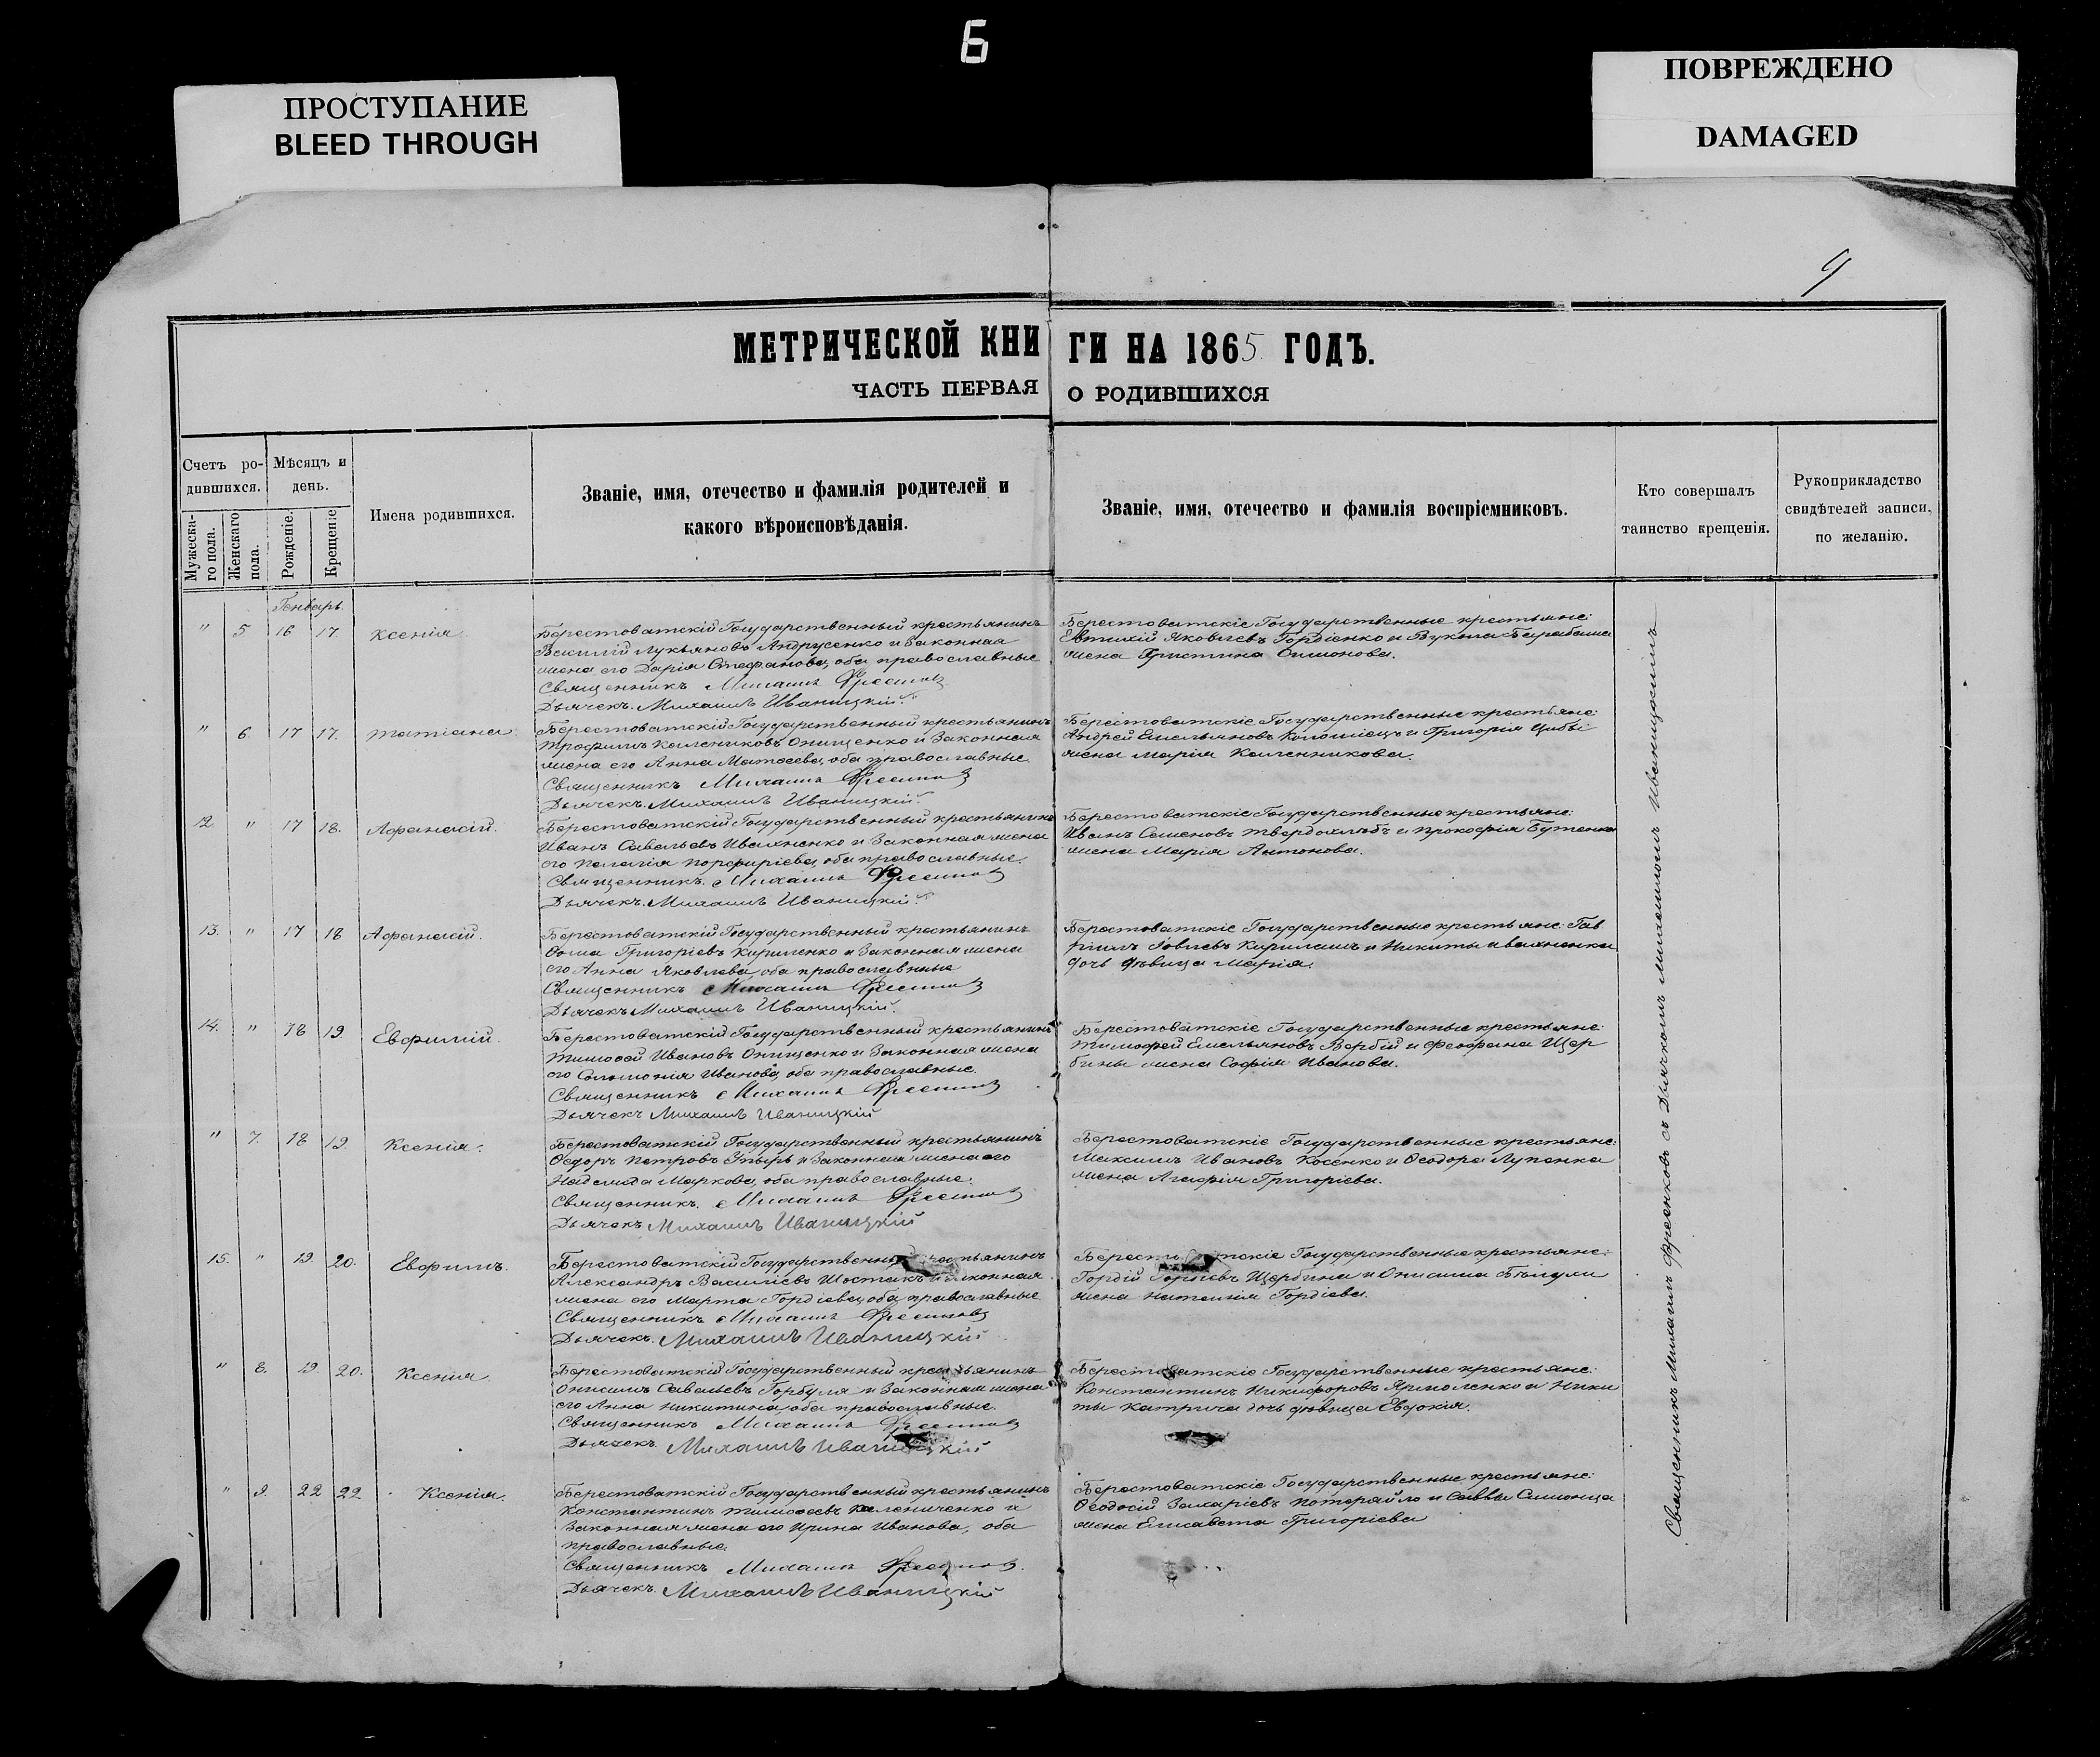 Б
ПРОСТУПАНИЕ
BLEED THROUGH
ПОВРЕЖДЕНО
DAMAGED
9
МЕТРИЧЕСКОЙ КНИГИ НА 1865 ГОДЪ.
ЧАСТЬ ПЕРВАЯ О РОДИВШИХСЯ
Счетъ ро-
дившихся.
Мужеска-
го пола.
Женскаго
пола.
Мѣсяцъ и
день.
Рожденіе.
Крещеніе
Имена родившихся.
Званіе, имя, отечество и фамилія родителей и
какого вѣроисповѣданія.
Званіе, имя, отечество и фамилія воспріемниковъ.
Кто совершалъ
таинство крещенія.
Рукоприкладство
свидѣтелей записи,
по желанію.
Генварь.
" 5 16 17. Ксенія.
Берестоватскій Государственный крестьянинъ
Василій Лукьяновъ Андрусенко и законная
жена его Дарія Стефанова, оба православные
Священникъ Михаилъ
Дьячекъ. Михаилъ Иваницкій.
Берестоватскіе Государственные крестьяне:
Евтихій Яковлевъ Гордіенко и Вукола Барабаша
жена Христина Симонова.
" 6. 17 17. Татіана
Берестоватскій Государственный крестьянинъ
Трофимъ Калениковъ Онищенко и Законная
жена его Анна Матѳеева, оба православные.
Священникъ Михаилъ
Дьячекъ. Михаилъ Иваницкій.
Берестоватскіе Государственные крестьяне:
Андрей Емельяновъ Коломіецъ и Григорія Цыбы
жена Марія Каленникова.
12 " 17 18. Афанасій.
Берестоватскій Государственный крестьянинъ
Иванъ Савельевъ Иваненко и Законная жена
его Пелагія Порфиріева, оба православные.
Священникъ. Михаилъ
Дьячекъ. Михаилъ Иваницкій.
Берестоватскіе Государственные крестьяне:
Иванъ Семеновъ Твердохлѣбъ и Прокофія Бутенка
жена Марія Антонова.
13. " 17 18 Афанасій.
Берестоватскій Государственный крестьянинъ
Ѳома Григоріевъ Кириленко и Законная жена
его Анна Яковлева, оба православные
Священникъ Михаилъ
Дьячекъ Михаилъ Иваницкій.
Берестоватскіе Государственные крестьяне: Гав
ріилъ Іовлевъ и Никиты Иваненка
дочь дѣвица Марія.
14. " 18 19. Евфимій.
Берестоватскій Государственный крестьянинъ
Тимоѳей Ивановъ Онищенко и Законная жена
его Соломонія Иванова, оба православные.
Священникъ Михаилъ
Дьячекъ Михаилъ Иваницкій
Берестоватскіе Государственные крестьяне:
Тимофей Емельяновъ Вербій и Феофана Щер
бины жена Софія Иванова.
" 7. 18 19. Ксенія.
Берестоватскій Государственный крестьянинъ
Ѳедоръ Петровъ Упырь и Законная жена его
Надежда Маркова, оба православные.
Священникъ. Михаилъ
Дьячекъ Михаилъ Иваницкій
Берестоватскіе Государственные крестьяне:
Максимъ Ивановъ Косенко и Ѳеодора Лупенка
жена Агафія Григоріева.
15. " 19. 20. Евфимъ.
Берестоватскій Государственный крестьянинъ
Александръ Василіевъ Шостакъ и законная
жена его Марта Гордіева, оба православные
Священникъ Михаилъ
Дьячекъ. Михаилъ Иваницкій
Берестоватскіе Государственные крестьяне:
Гордій Щербина и Онисима
жена Наталія Гордіева.
" 8. 19. 20. Ксенія
Берестоватскій Государственный крестьянинъ
Онисимъ Савельевъ Горбуля и Законная жена
его Анна Никитина, оба православные.
Священникъ Михаилъ
Дьячекъ. Михаилъ Иваницкій
Берестоватскіе Государственные крестьяне:
Константинъ Никифоровъ Ярмоленко и Ники
ты Катрича дочь дѣвица Евдокія.
" 9. 22 22 Ксенія.
Берестоватскій Государственный крестьянинъ
Константинъ Тимоѳеевъ Калениченко и
Законная жена его Ирина Иванова, оба
православные.
Священникъ Михаилъ
Дьячекъ. Михаилъ Иваницкій
Берестоватскіе Государственные крестьяне:
Ѳеодосій Захаріевъ Потеряйло и Саввы Симонца
жена Елисавета Григоріева
Священникъ Михаилъ съ Дьячкомъ Михаиломъ Иваницкимъ